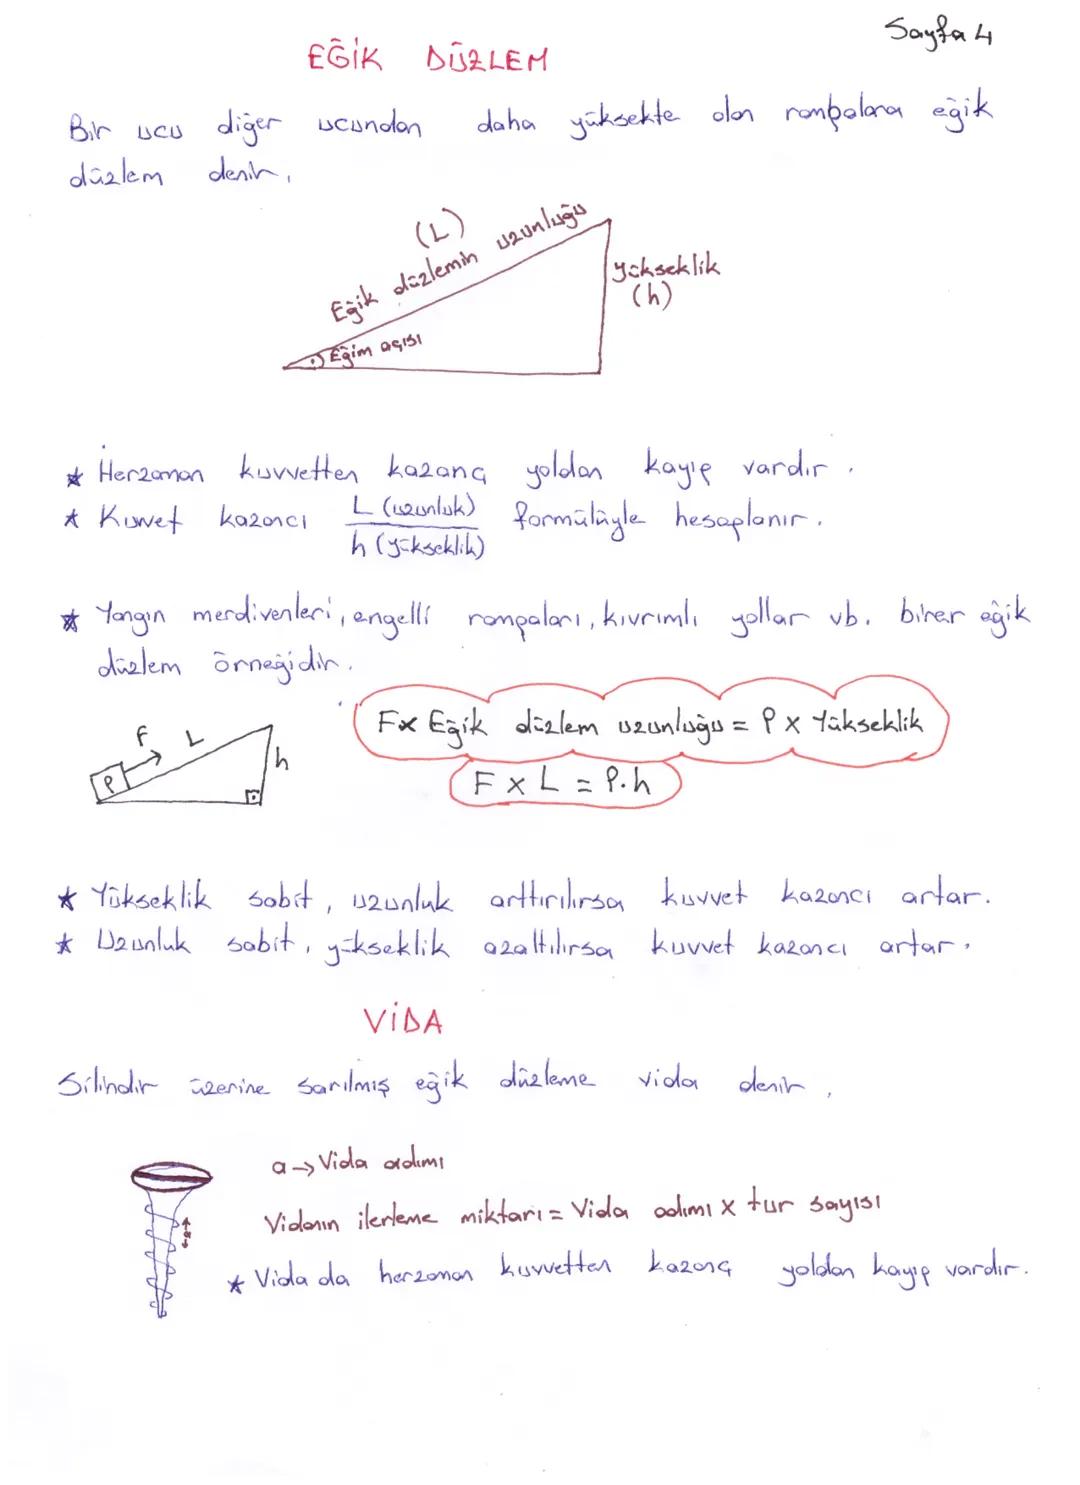 Sayfa 4
EĞİK DÜZLEM
Bir ucu diğer ucundan daha yüksekte olan rampalara eğik
düzlem denir.
(L)
Eğik düzlemin uzunluğu
yükseklik
(h)
Eğim açısı
* Herzaman kuvvetten kazanç yoldan kayıp vardır.
* Kuvvet kazancı L (uzunluk) formülüyle hesaplanır.
h (yükseklik)
* Yangın merdivenleri, engelli rampaları, kıvrımlı yollar vb. birer eğik
düzlem örneğidir.
F x Eğik düzlem uzunluğu = P x Yükseklik
F x L = P.h
F L
P
h
* Yükseklik sabit, uzunluk arttırılırsa kuvvet kazancı artar.
* Uzunluk sabit, yükseklik azaltılırsa kuvvet kazancı artar.
VİDA
Silindir üzerine sarılmış eğik düzleme vida denir.
a → Vida adımı
Vidanın ilerleme miktarı = Vida adımı x tur sayısı
a
* Vida da herzaman kuvvetten kazanç yoldan kayıp vardır.